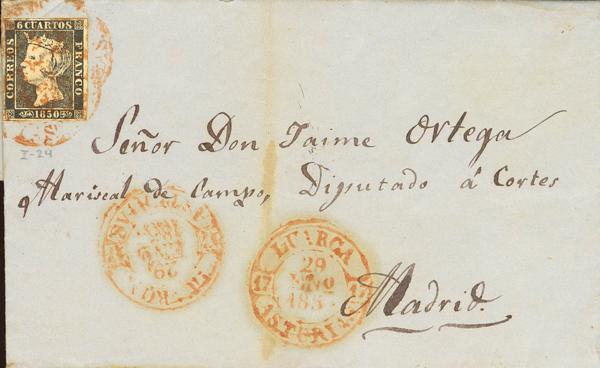 6 CUARTOS
CORREOS
FRANCO
1850
I-24
Señor Don Jaime Ortega
Mariscal de Campo, Diputado á Cortes
LUARCA
29
ASTURIAS
Madrid.